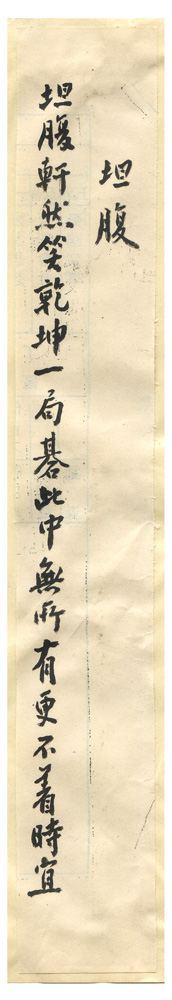 坦腹
坦腹軒然笑乾坤一局碁此中無所有更不着時宜